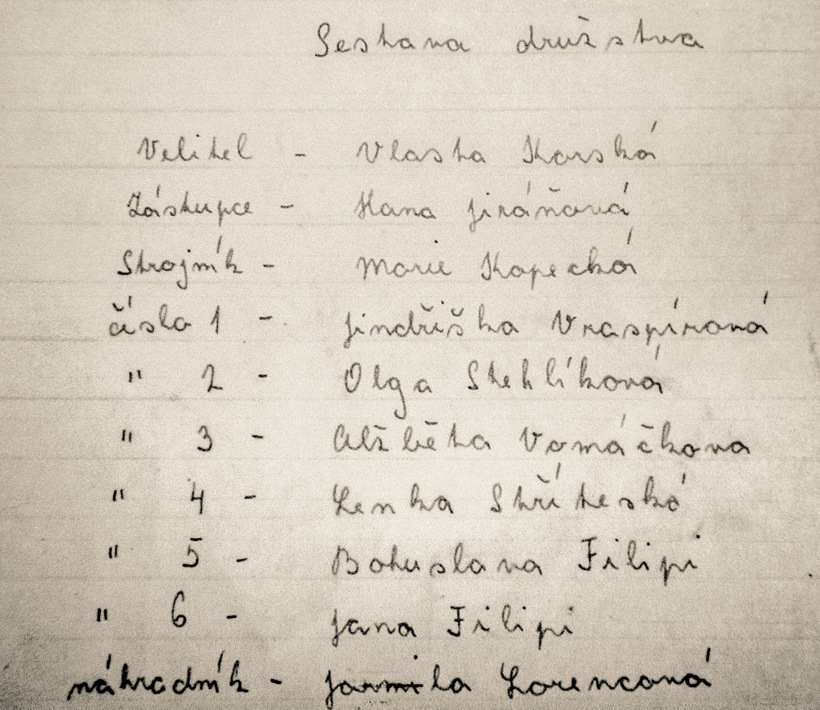 Sestava družstva
Velitel - Vlasta Korská
Zástupce - Hana Jiráňová
Strojník - Marie Kopecká
číslo 1 - Jindřiška Vraspírová
" 2 - Olga Stehlíková
" 3 - Alžběta Vomáčkova
" 4 - Lenka Stříteská
" 5 - Bohuslava Filipi
" 6 - Jana Filipi
náhradník - Jarmila Lorencová